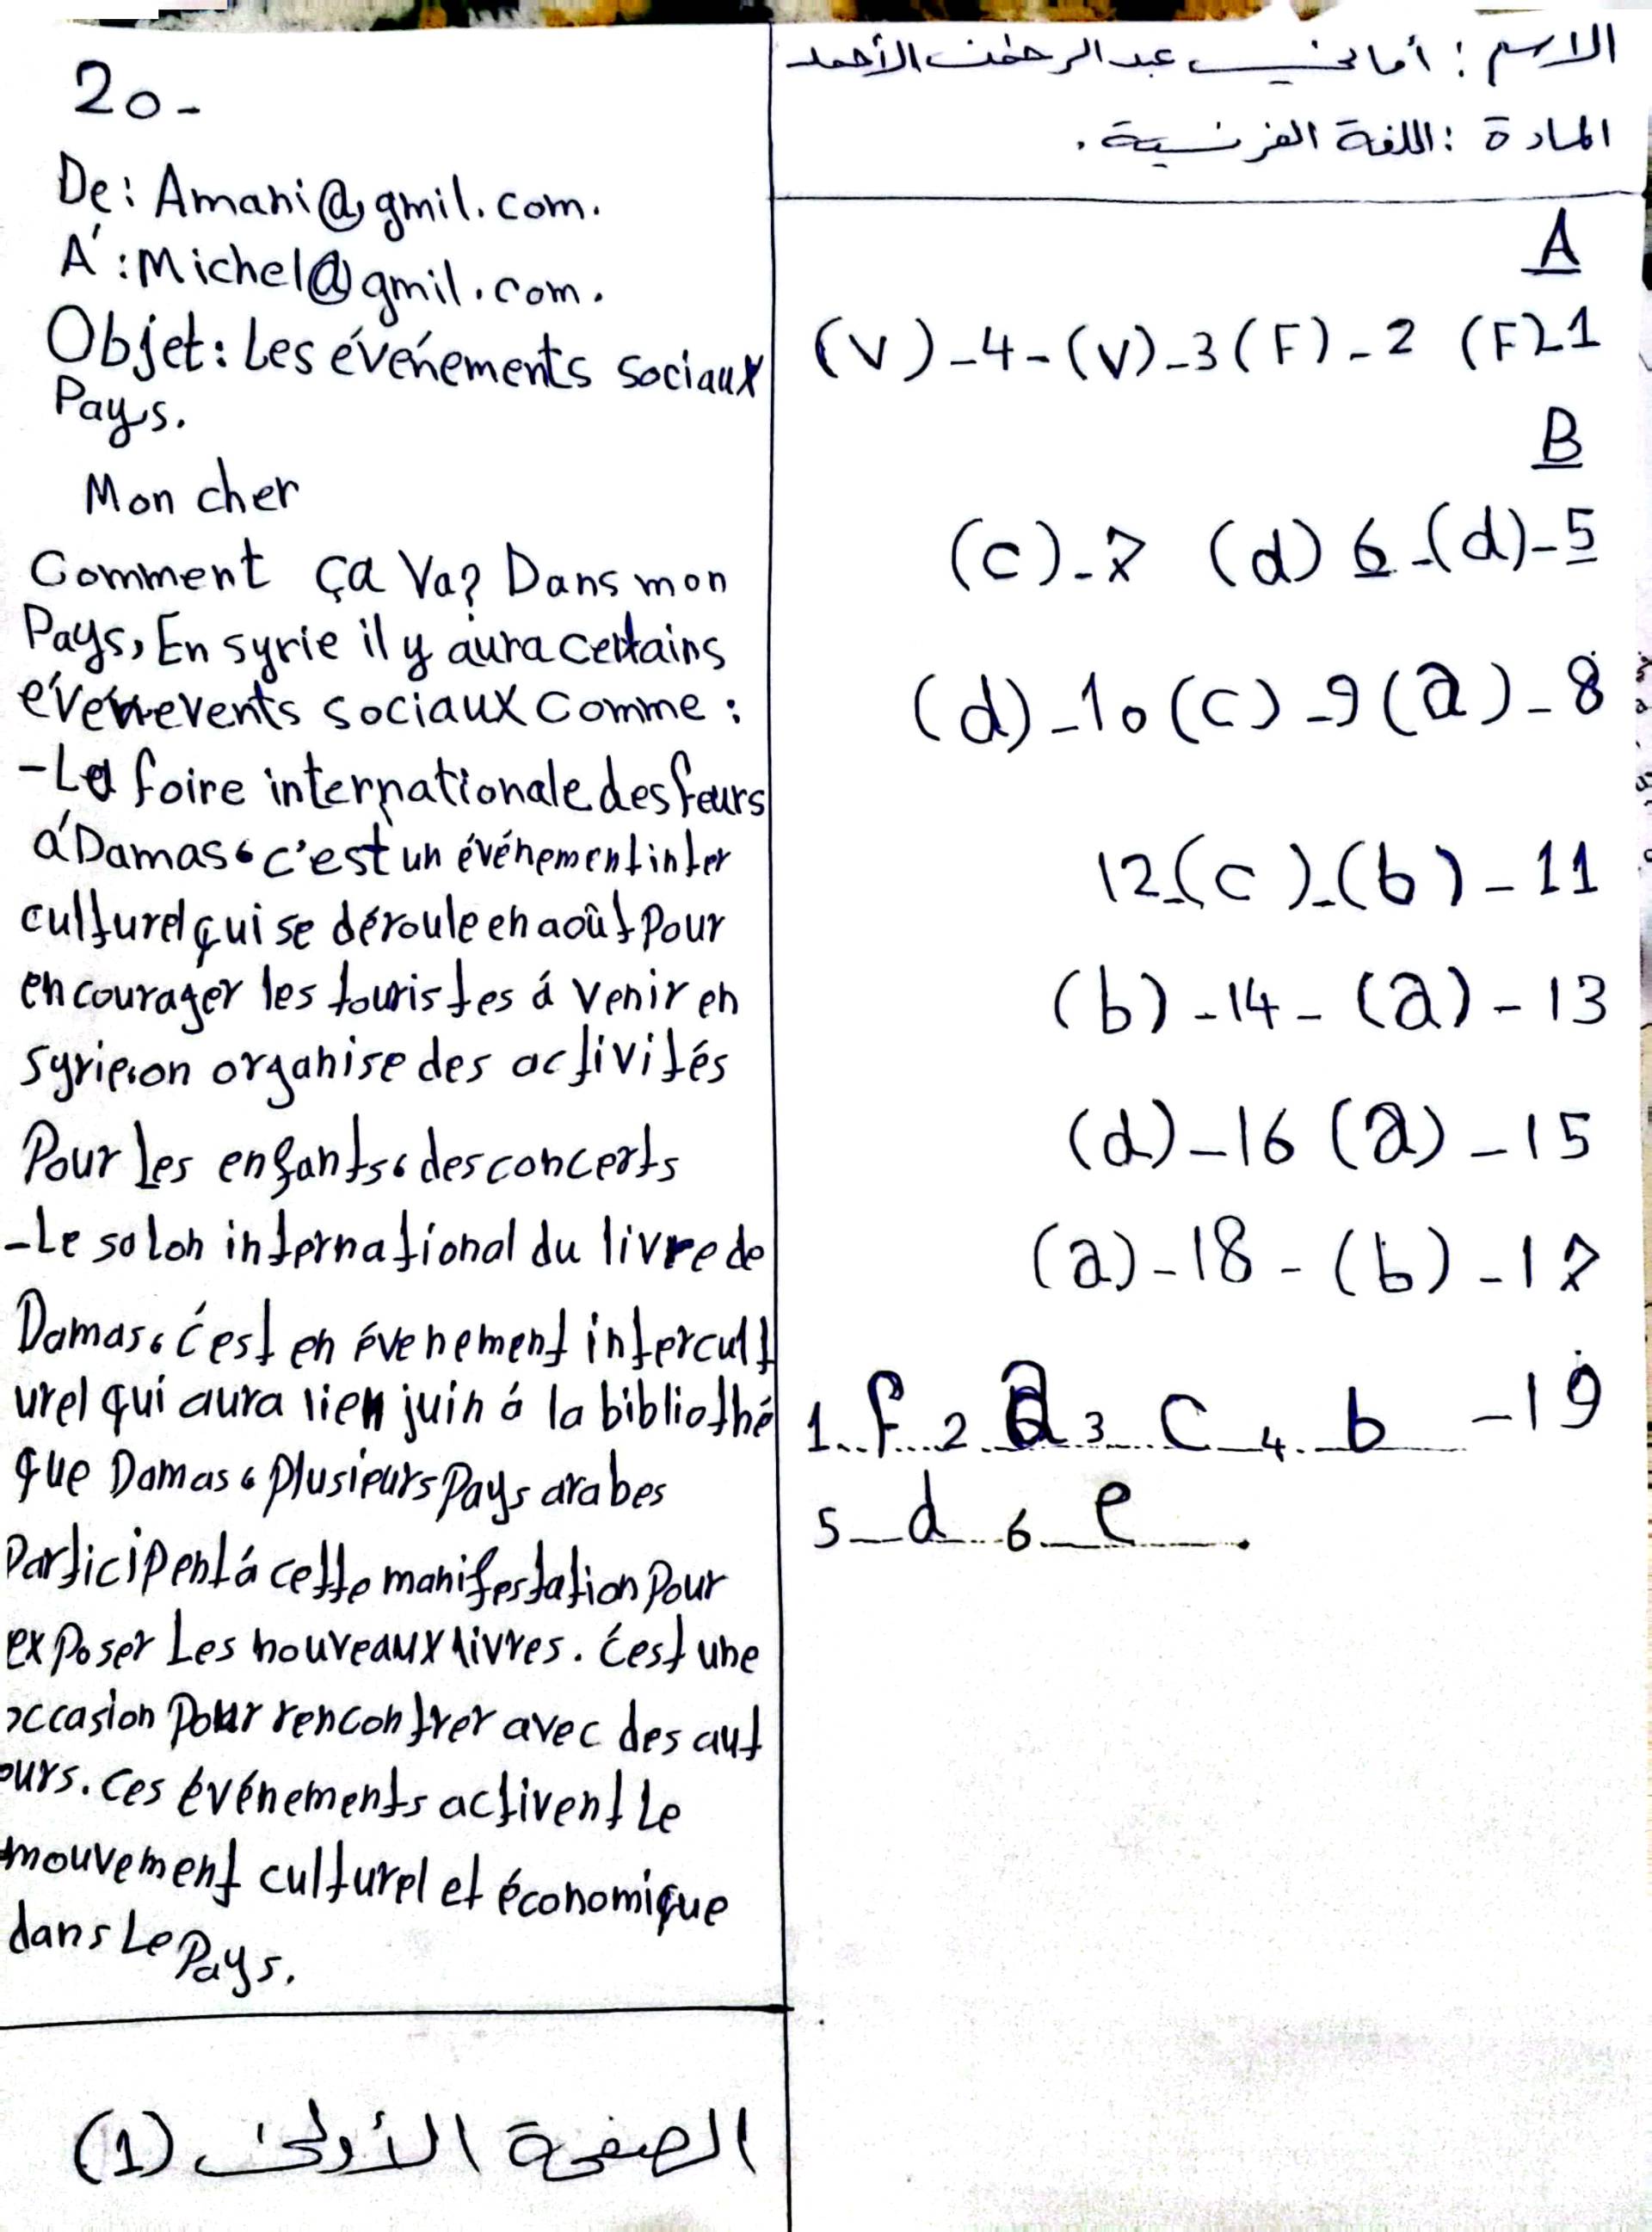 الاسم : أماني عبد الرحمن الأحمد
المادة : اللغة الفرنسية .
A
(V) - 4 - (V) - 3 (F) - 2 (F) - 1
B
(c) - 7 (d) 6 - (d) - 5
(d) - 10 (c) - 9 (a) - 8
12 - (c) - (b) - 11
(b) - 14 - (a) - 13
(d) - 16 (a) - 15
(a) - 18 - (b) - 17
1.. f... 2. a 3.... c ... 4. . b ... - 19
5 ... d ... 6. .. e ..... .
20 -
De : Amani@gmil.com.
À : Michel@gmil.com.
Objet : Les événements sociaux
Pays.
Mon cher
Comment ça Va? Dans mon
Pays, En syrie il y aura certains
évenevents sociaux comme :
- La foire internationale des feurs
á Damas, c'est un événement inter
culturel qui se déroule en août pour
encourager les touristes á venir en
syrie, on organise des activités
Pour les enfants, des concerts
- Le salon international du livre de
Damas, c'est en évenement intercult
urel qui aura lien juin á la bibliothé
que Damas, plusieurs pays arabes
Participent á cette manifestation pour
exposer Les nouveaux livres. c'est une
occasion pour rencontrer avec des aut
eurs. ces événements activent le
mouvement culturel et économique
dans Le Pays.
الصفحة الأولى (1)